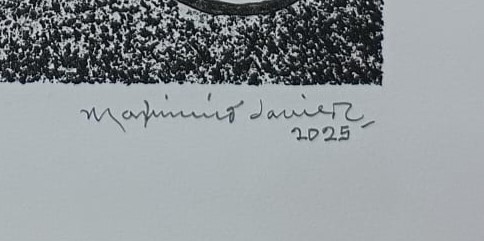 Maximino Javier
2025